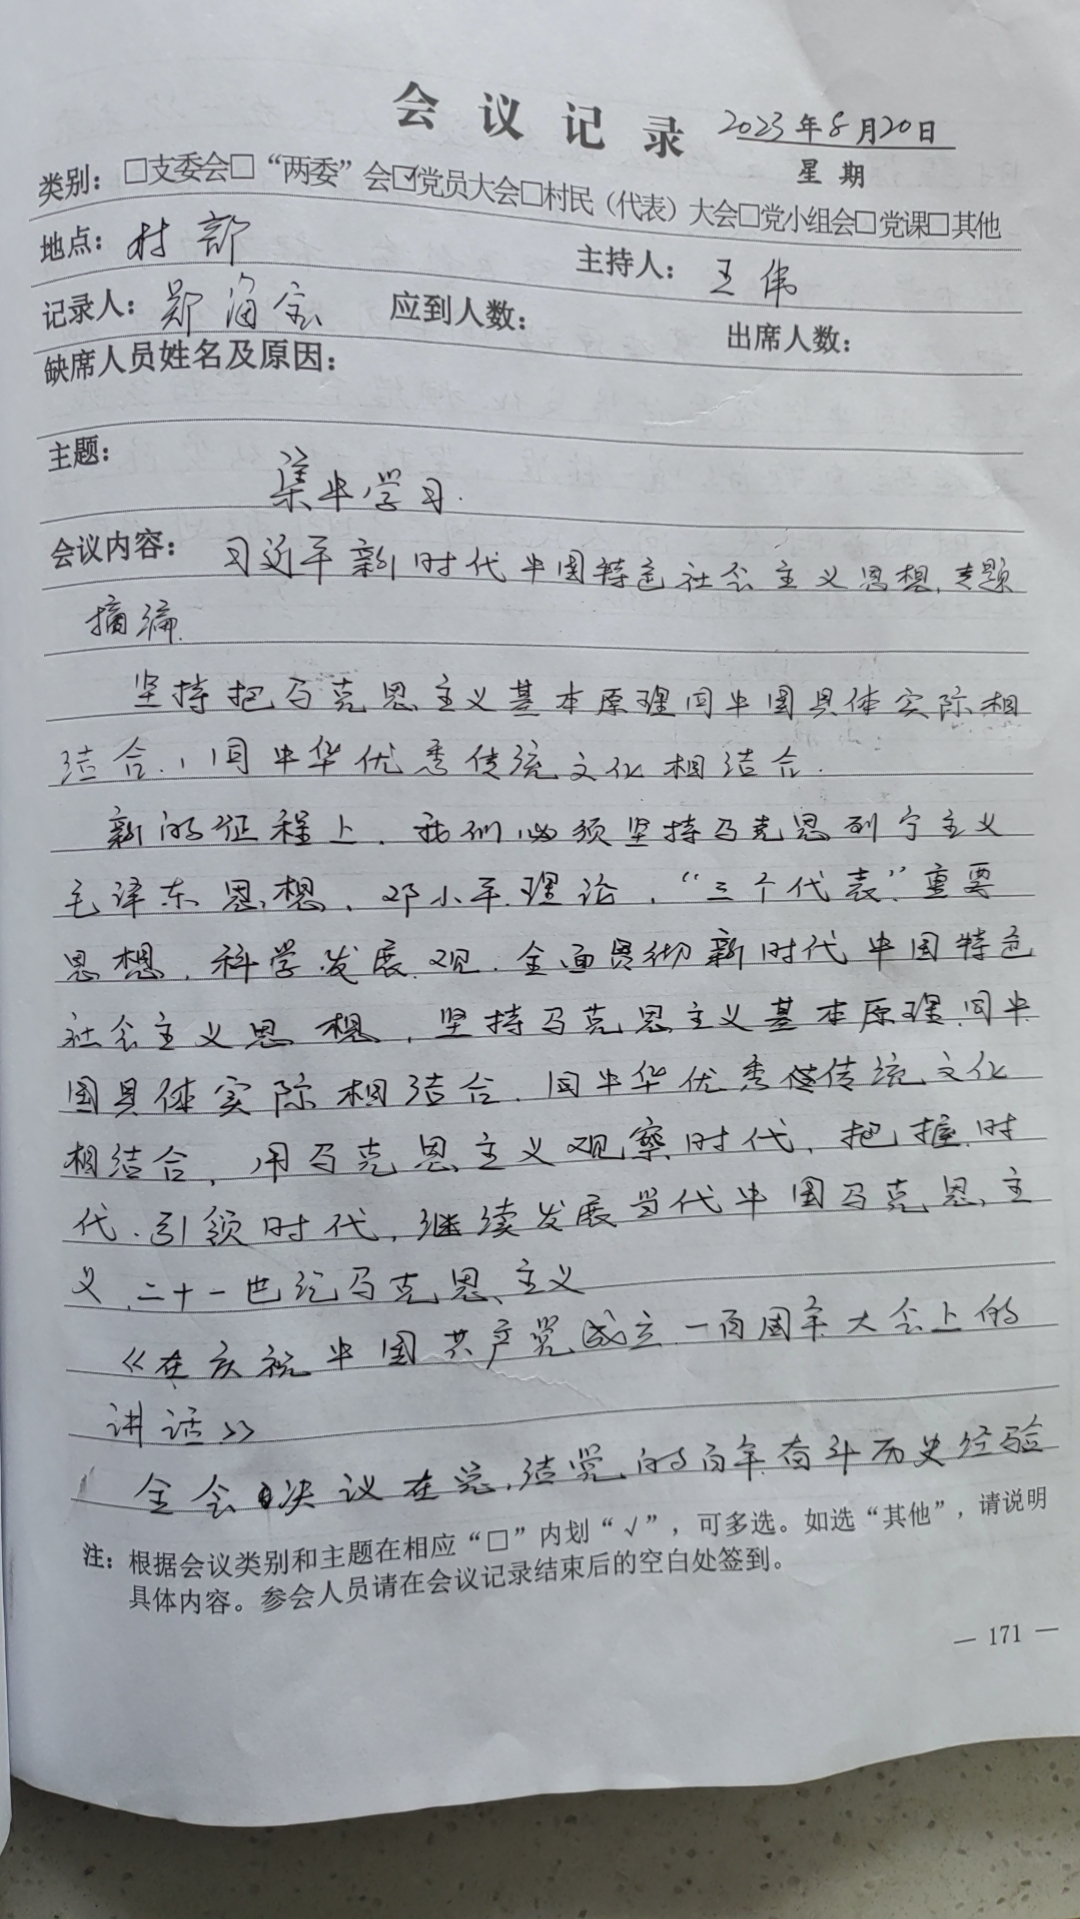 会议记录 2023年8月20日
星期
类别：□支委会□“两委”会☑党员大会□村民（代表）大会□党小组会□党课□其他
地点：村部 主持人：王伟
记录人：郑海宝 应到人数： 出席人数：
缺席人员姓名及原因：
主题：
集中学习.
会议内容：习近平新时代中国特色社会主义思想，专题
摘编
坚持把马克思主义基本原理同中国具体实际相
结合、同中华优秀传统文化相结合.
新的征程上，我们必须坚持马克思列宁主义
毛泽东思想、邓小平理论，“三个代表”重要
思想，科学发展观.全面贯彻新时代中国特色
社会主义思想，坚持马克思主义基本原理同中
国具体实际相结合.同中华优秀传统文化
相结合，用马克思主义观察时代，把握时
代.引领时代，继续发展当代中国马克思主
义、二十一世纪马克思主义
《在庆祝中国共产党成立一百周年大会上的
讲话》
全会决议在党，结党的百年奋斗历史经验
注：根据会议类别和主题在相应“□”内划“√”，可多选。如选“其他”，请说明
具体内容。参会人员请在会议记录结束后的空白处签到。
— 171 —